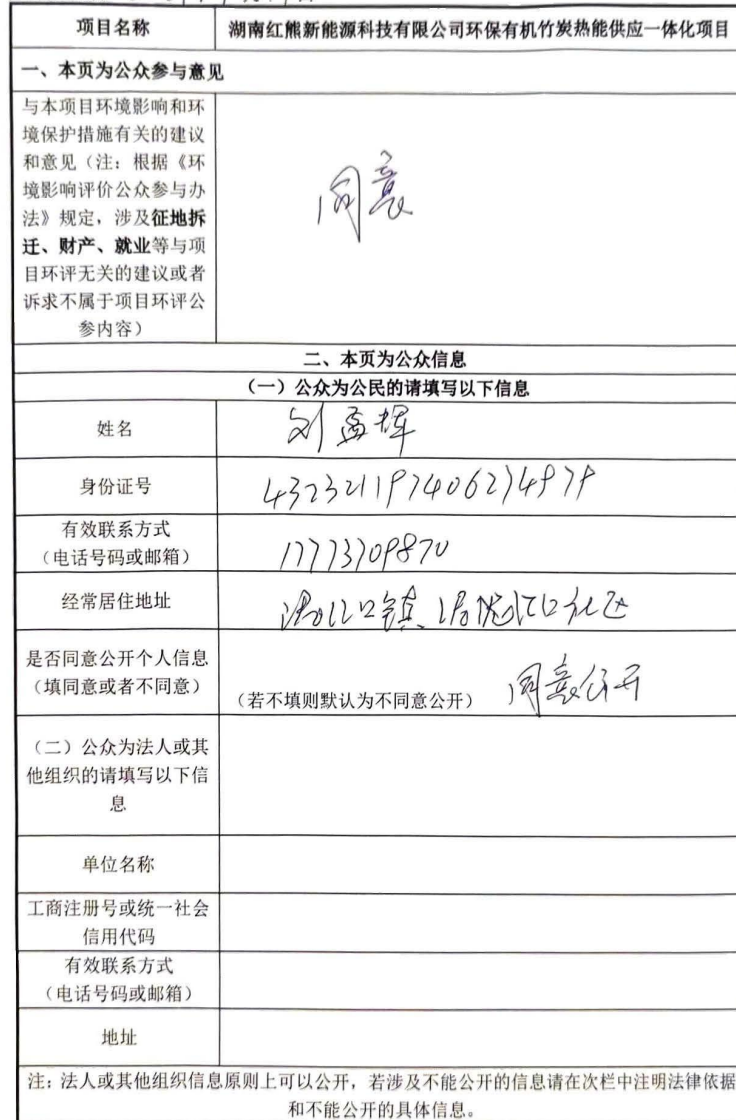 项目名称
湖南红熊新能源科技有限公司环保有机竹炭热能供应一体化项目
一、本页为公众参与意见
与本项目环境影响和环
境保护措施有关的建议
和意见（注：根据《环
境影响评价公众参与办
法》规定，涉及征地拆
迁、财产、就业等与项
目环评无关的建议或者
诉求不属于项目环评公
参内容）
同意
二、本页为公众信息
（一）公众为公民的请填写以下信息
姓名
刘孟辉
身份证号
有效联系方式
（电话号码或邮箱）
17773709870
经常居住地址
口镇 口社区
是否同意公开个人信息
（填同意或者不同意）
（若不填则默认为不同意公开） 同意公开
（二）公众为法人或其
他组织的请填写以下信
息
单位名称
工商注册号或统一社会
信用代码
有效联系方式
（电话号码或邮箱）
地址
注：法人或其他组织信息原则上可以公开，若涉及不能公开的信息请在次栏中注明法律依据
和不能公开的具体信息。